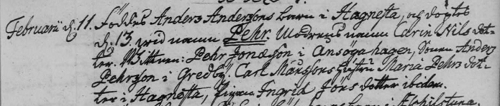 Februarii d. 11. föddes Anders Andersons barn i Hagnesta, og döptes
d. 13. wid namn Pehr. Modrens namn Carin Nils dot-
ter. Wittnen: Pehr Jonæson i Ansogahagen, Drengen Anders
Pehrson i Gredby. Carl Mårssons hustru Maria Pehrs dot-
ter i Hagnesta, Pigan Ingrid Jörs dotter ibidem.